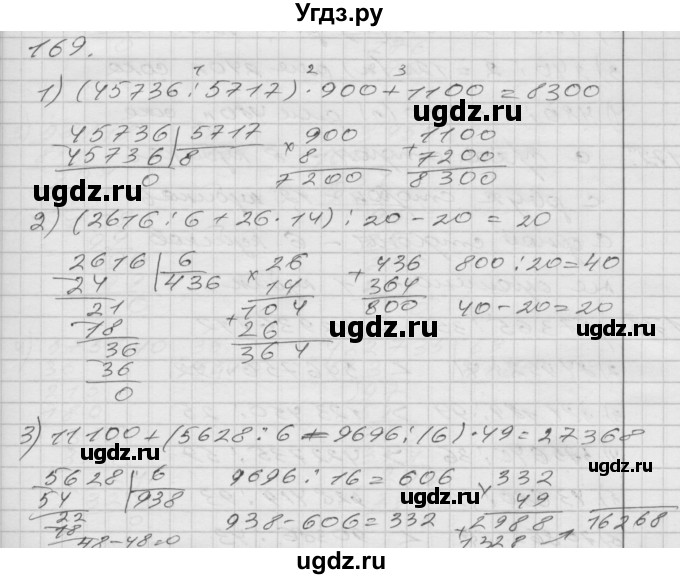 Угдз.ру
169.
1 2 3
1) (45736 : 5717) · 900 + 1100 = 8300
45736 | 5717 × 900 + 1100
45736 | 8 8 7200
0 7200 8300
2) (2616 : 6 + 26 · 14) : 20 - 20 = 20
2616 | 6 × 26 + 436 800 : 20 = 40
24 | 436 14 364
21 104 800 40 - 20 = 20
18 + 26
36 364
36
0
3) 11100 + (5628 : 6 - 9696 : 16) · 49 = 27368
5628 | 6 9696 : 16 = 606 × 332
54 | 938 49
22 938 - 606 = 332 2988 16268
18 + 1328
48 - 48 = 0
ugdz.ru
ugdz.ru
ugdz.ru
ugdz.ru
ugdz.ru
ugdz.ru
ugdz.ru
ugdz.ru
ugdz.ru
ugdz.ru
ugdz.ru